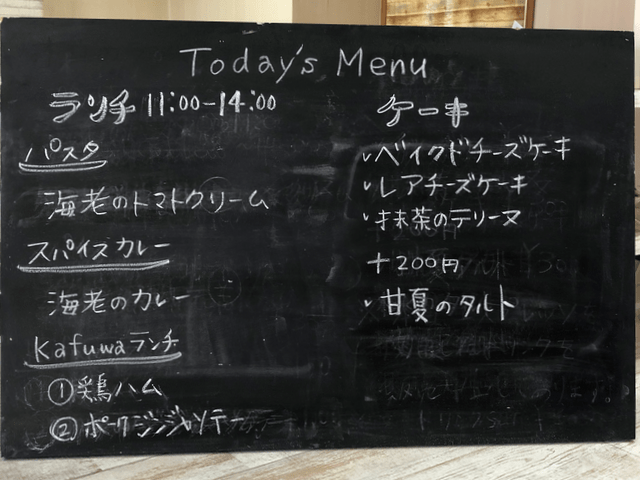 Today's Menu
ランチ 11:00-14:00
パスタ
海老のトマトクリーム
スパイスカレー
海老のカレー
Kafuwaランチ
①鶏ハム
②ポークジンジャソテー
ケーキ
・ベイクドチーズケーキ
・レアチーズケーキ
・抹茶のテリーヌ
+200円
・甘夏のタルト